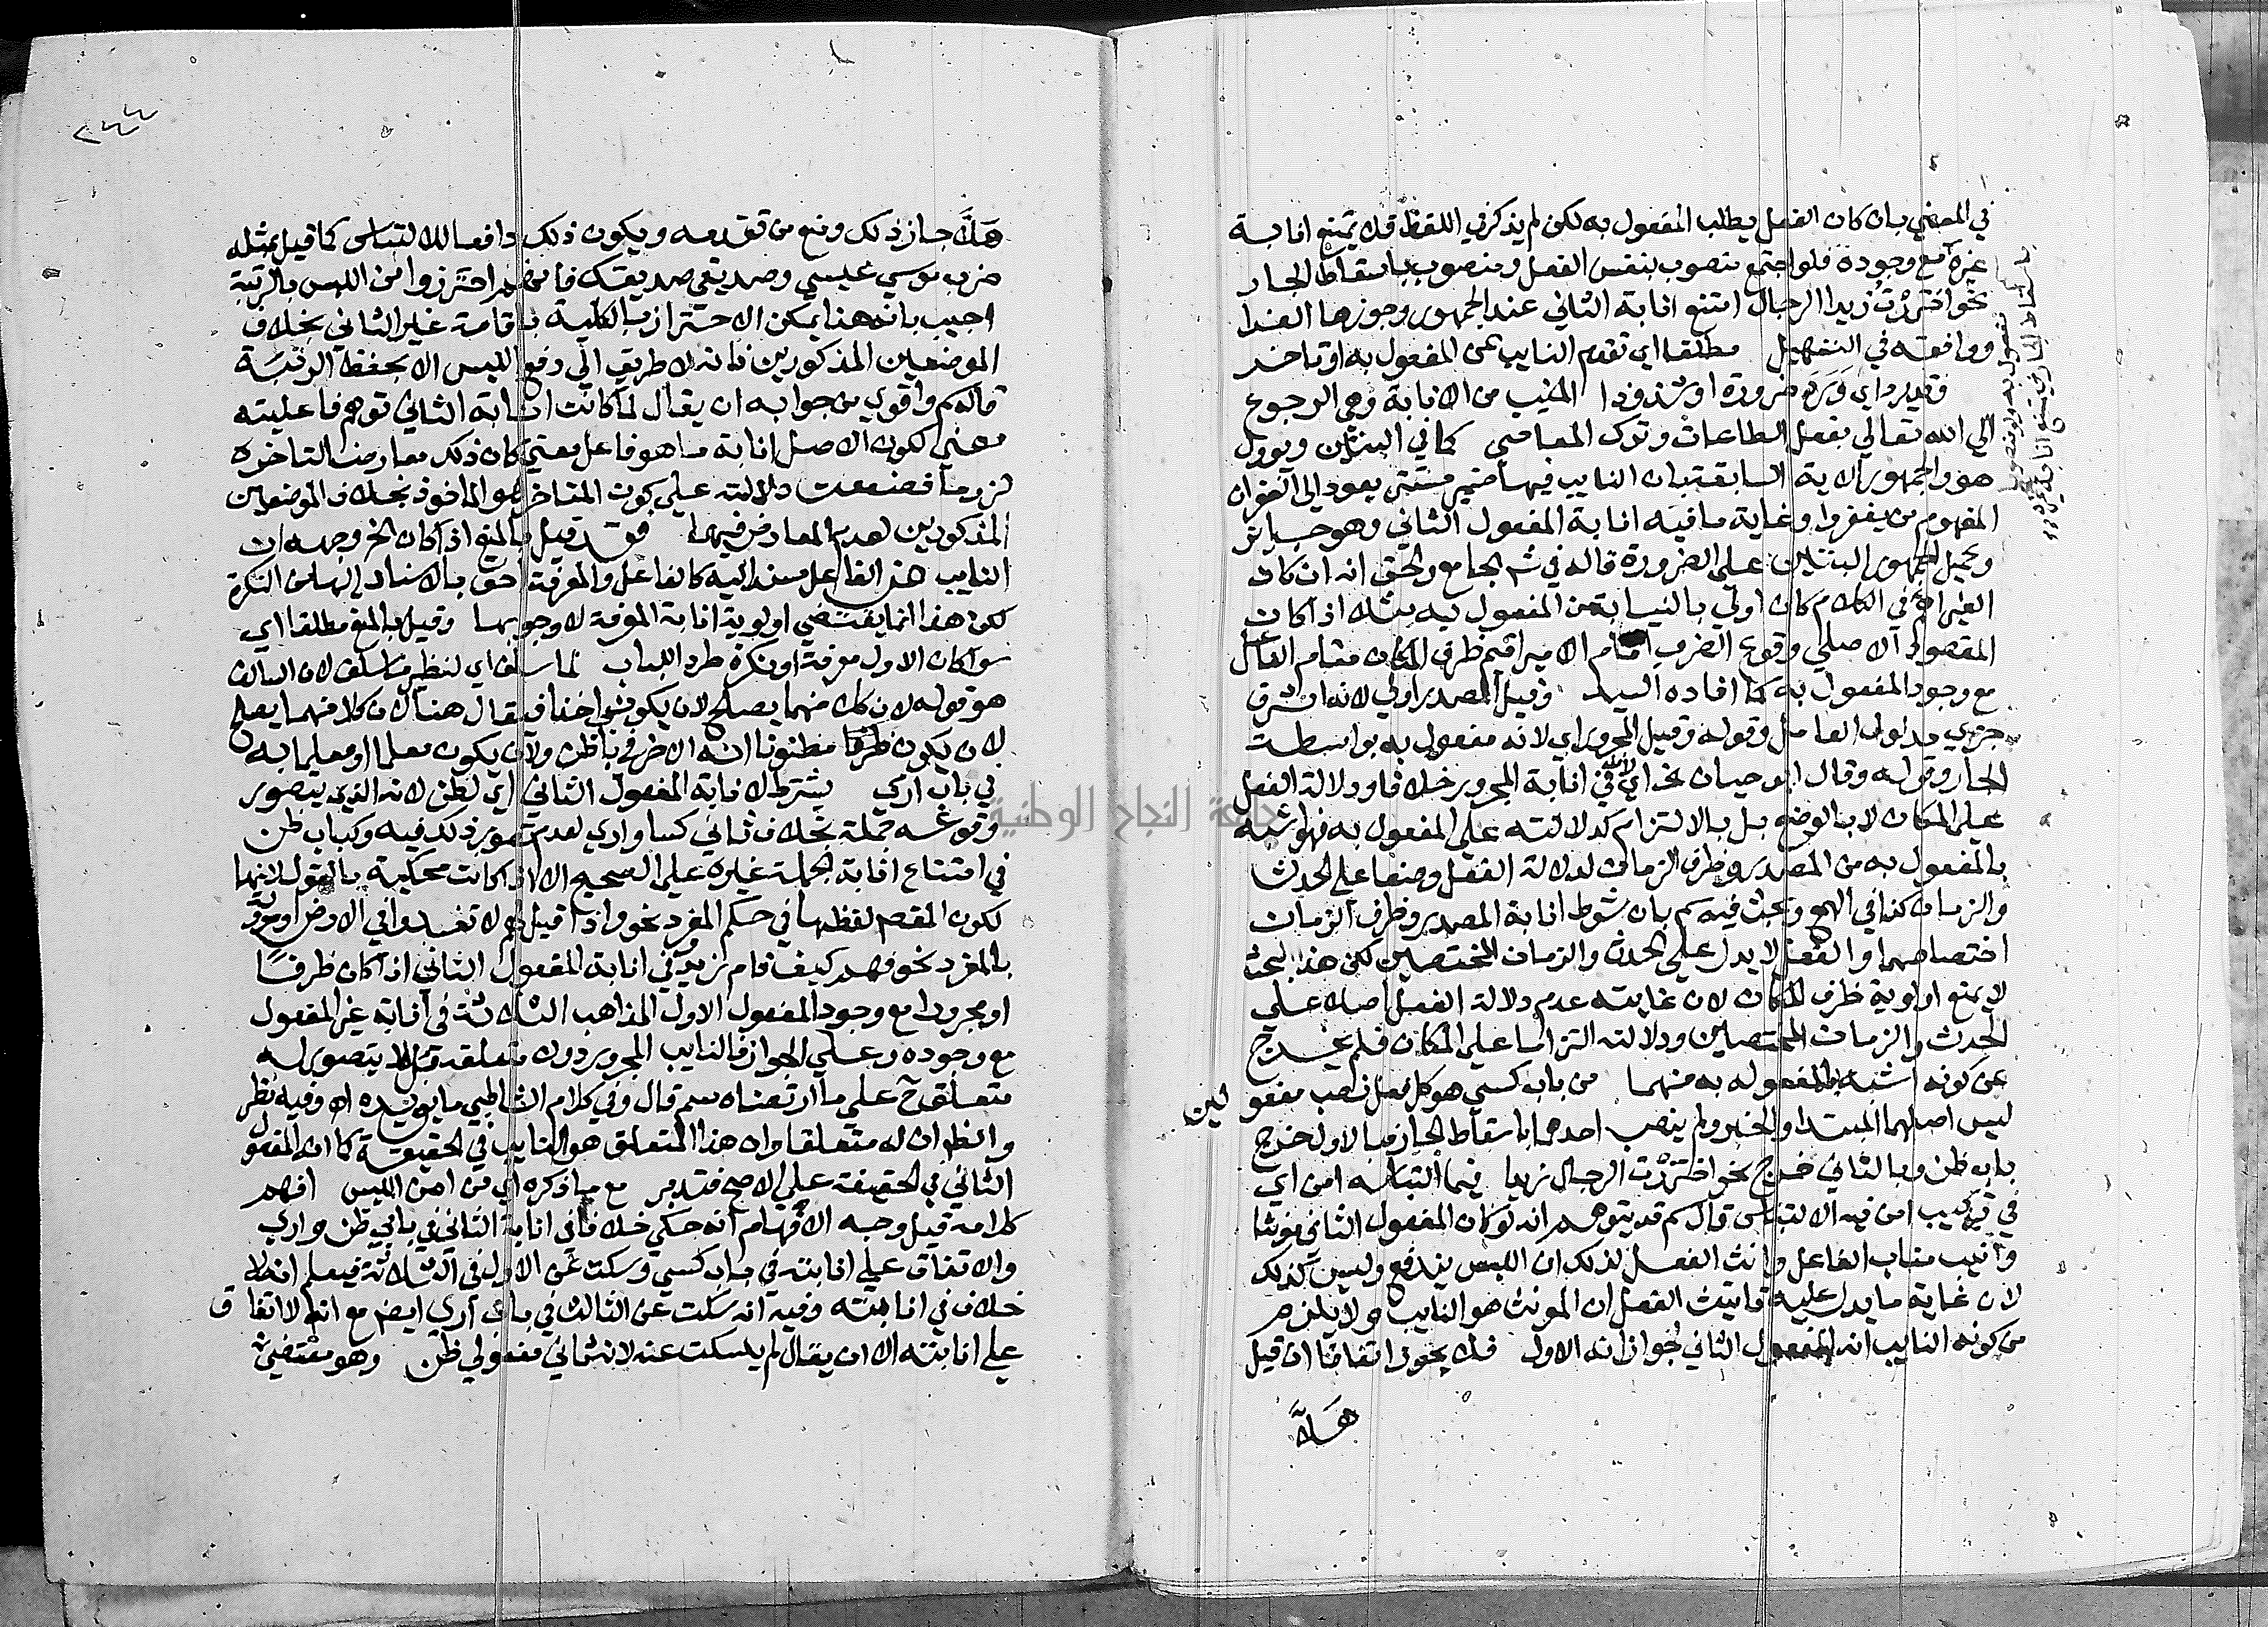 في المعني بان كان الفعل يطلب المفعول به لكن لم يذكر في اللفظ فلا يمتنع انابة
غيره مع وجوده فلو اجتمع منصوب بنفس الفعل ومنصوب باسقاط الجار
نحو اخترت زيدا الرجال امتنع انابة الثاني عند الجمهور وجوزها الفرا
ووافقه في التسهيل مطلقا اي تقدم النايب عن المفعول به او تاخر
وقد يرد اي ويره ضرورة او شذوذا المنيب من الانابة وهي الرجوع
الي الله تعالي بفعل الطاعات وترك المعاصي كما في البيتين ويوول
هو والجمهور الاية السابقة بان النايب فيها ضمير مستتر يعود الي الغفران
المفهوم من يغفروا وغاية ما فيه انابة المفعول الثاني وهو جايز
ويحمل الجمهور البيتين علي الضرورة قاله في شم الجامع والحق انه ان كان
الغير اهم في الكلام كان اولي بالنيابة من المفعول به مثلا اذا كان
المقصود الاصلي وقوع الضرب امام الامير اقيم ظرف المكان مقام الفاعل
مع وجود المفعول به كما افاده السيد وقيل المصدر اولي لانه اشرق
جزي مدلول العامل وقوله وقيل المجرور اي لانه مفعول به بواسطت
الجار وقوله وقال ابو حيان نحو اي لان في انابة المجرور خلافا ودلالة الفعل
علي المكان لا بالوضع بل بالالتزام كدلالته علي المفعول به فهو اشبه
بالمفعول به من المصدر وظرف الزمان لدلالة الفعل وضعا علي الحدث
والزمان كذا في الهمع وبحث فيه سم بان شرط انابة المصدر وظرف الزمان
اختصاصهما والفعل لا يدل علي الحدث والزمان المختصين لكن هذا البحث
لا يمنع اولوية ظرف المكان لان غايته عدم دلالة الفعل اصلا علي
الحدث والزمان المختصين ودلالته التزاما علي المكان فلم يخرج
عن كونه اشبه بالمفعول به منهما من باب كسي هو كل فعل نصب مفعولين
ليس اصلهما المبتدا والخبر ولم ينصب احدهما باسقاط الجار فبالاول خرج
باب ظن وبالثاني خرج نحو اخترت الرجال زيدا فيما التباسه امن اي
في تركيب امن فيه الالتباس قال سم قد يتوهم انه لو كان المفعول الثاني مونثا
وانيب مناب الفاعل وانث الفعل لذلك ان اللبس يندفع وليس كذلك
لان غاية ما يدل عليه تانيث الفعل ان المونث هو النايب ولا يلزم
من كونه النايب انه المفعول الثاني لجواز انه الاول فلا يجوز اتفاقا ان قيل
هلا
مفعول به ولو منصوبا
باسقاط الجار يمتنع انابة غيره
٢٤٤
هلا جاز ذلك ومنع من تقدمه ويكون ذلك دافعا للالتباس كما قيل بمثله
ضرب موسي عيسي وصديقي صديقك فانهم احترزوا من اللبس بالرتبة
اجيب بانه هنا يمكن الاحتراز بالكلية باقامة غير الثاني بخلاف
الموضعين المذكورين فانه لا طريق الي دفع اللبس الا بحفظ الرتبة
قاله سم واقوي من جوابه ان يقال لما كانت انابة الثاني توهم فاعليته
معني لكون الاصل انابة ما هو فاعل معني كان ذلك معارضا لتاخره
لزوما فضعفت دلالته علي كون المتاخر هو الماخوذ بخلاف الموضعين
المذكورين لعدم المعارض فيهما وقد قيل بالمنع اذا كان الخ وجهه ان
النايب عن الفاعل مسند اليه كالفاعل والمعرفة احق بالاسناد اليها من النكرة
لكن هذا انما يقتضي اولوية انابة المعرفة لا وجوبها وقيل بالمنع مطلقا اي
سوا كان الاول معرفة او نكرة طرد اللباب لما سلف اي لنظير ما سلف لان السالف
هو قوله لان كلا منهما يصلح لان يكون اخذا فيقال هنا لان كلا منهما يصلح
لان يكون ظرفا مظنونا انه الاخر في باب ظن ولان يكون معلما او معلما به
في باب اري يشترط لانابة المفعول الثاني اي لظن لانه الذي يتصور
وقوعه جملة بخلاف ثاني كسا واري لعدم تصور ذلك فيه وكباب ظن
في امتناع انابة الجملة غيره علي الصحيح الا ان كانت محكية بالقول لانها
لكون المقصود لفظها في حكم المفرد نحو واذا قيل لهم لا تفسدوا في الارض او موولة
بالمفرد نحو فهم كيف قام زيد في انابة المفعول الثاني اذا كان ظرفا
او مجرورا مع وجود المفعول الاول المذاهب الثلاثة في انابة غير المفعول
مع وجوده وعلي الجواز فالنايب المجرور دون متعلقه قبل لا يتصور له
متعلق ح علي ما ارتضاه سم قال وفي كلام الشاطبي ما يويده اه وفيه نظر
والظ ان له متعلقا وان هذا المتعلق هو النايب في الحقيقة كما انه المفعول
الثاني في الحقيقة علي الاصح فتدبر مع ما ذكره اي من امن اللبس افهم
كلامه قيل وجه الافهام انه حكي خلافا في انابة الثاني في بابي ظن واري
والاتفاق علي انابته في باب كسي وسكت عن الاول في الثلاثة فيعلم انه لا
خلاف في انابته وفيه انه سكت عن الثالث في باب اري ايضم مع انه لا اتفاق
علي انابته الا ان يقال لم يسكت عنه لانه ثاني مفعولي ظن وهو مقتضي
جامعة النجاح الوطنية